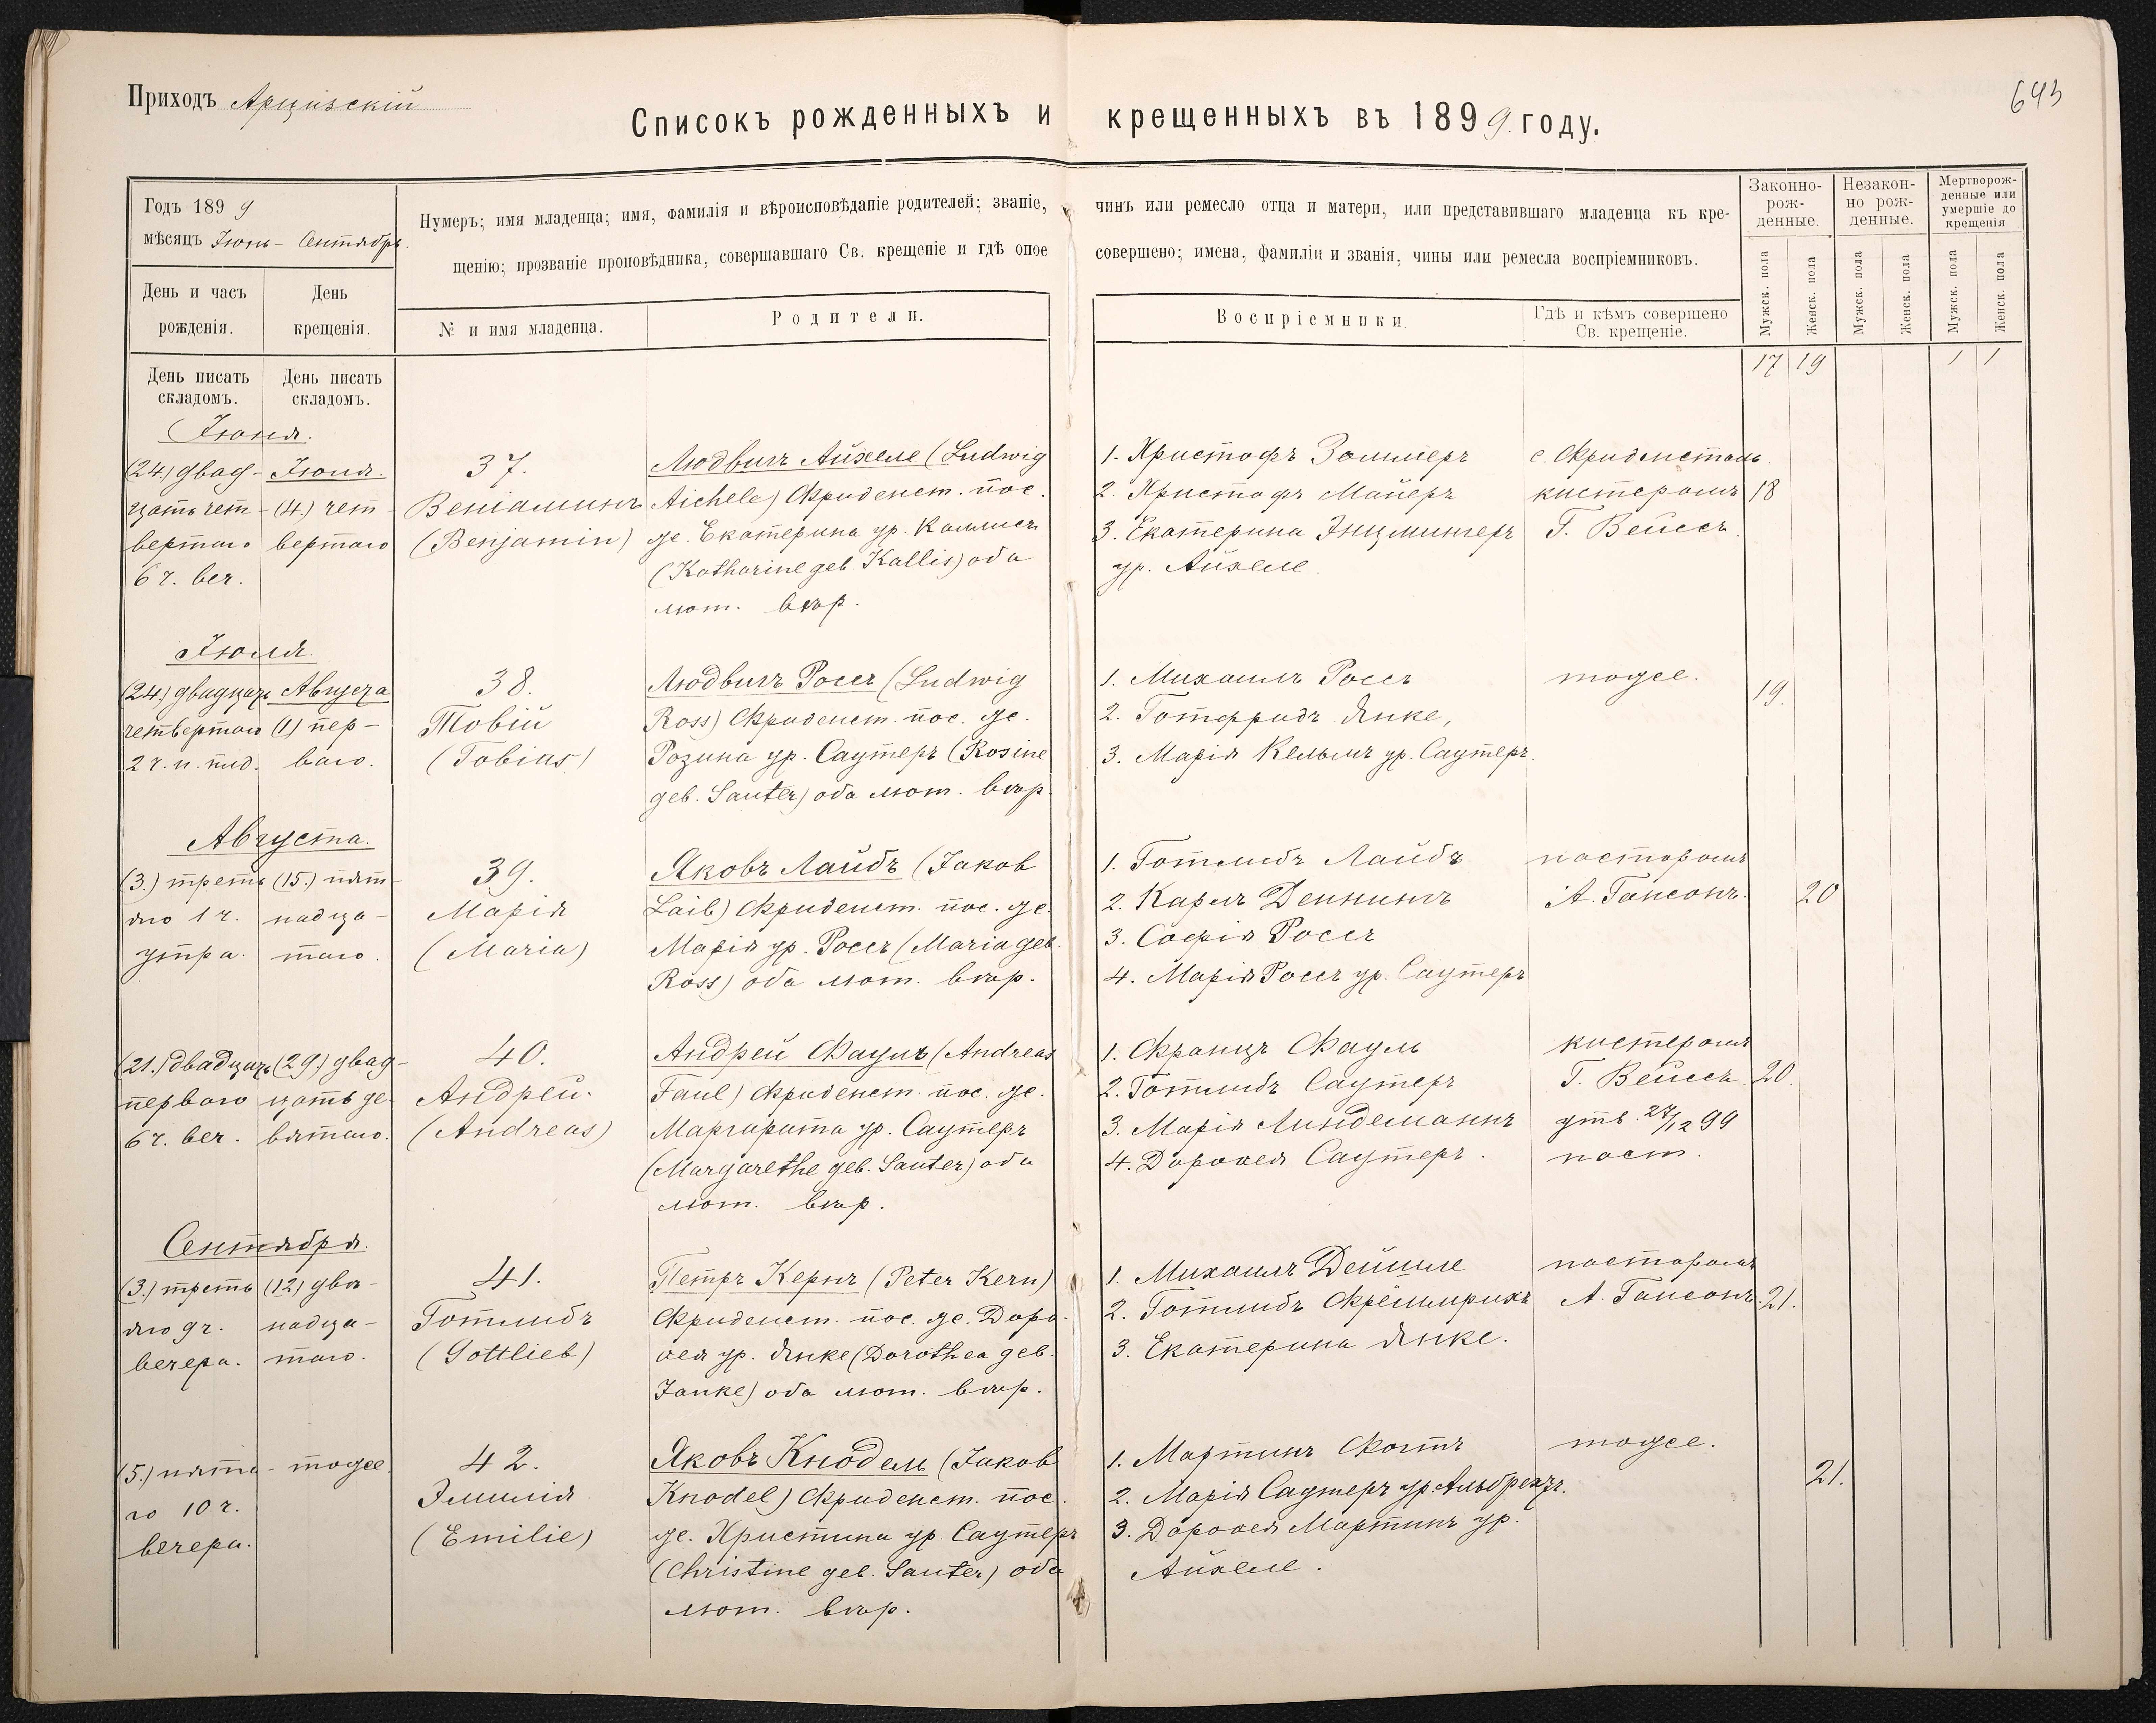 Приходъ Арцизскій
643
Списокъ рожденныхъ и крещенныхъ въ 1899 году.
Годъ 1899
мѣсяцъ Іюнь - Сентябрь.
Нумеръ; имя младенца; имя, фамилія и вѣроисповѣданіе родителей; званіе, чинъ или ремесло отца и матери, или представившаго младенца къ кре-
щенію; прозваніе проповѣдника, совершавшаго Св. крещеніе и гдѣ оное совершено; имена, фамиліи и званія, чины или ремесла воспріемниковъ.
Законно-
рож-
денные.
Незакон-
но рож-
денные.
Мертворож-
денные или
умершіе до
крещенія
День и часъ
рожденія.
День
крещенія.
№ и имя младенца.
Родители.
Воспріемники
Гдѣ и кѣмъ совершено
Св. крещеніе.
Мужск. пола
Женск. пола
Мужск. пола
Женск. пола
Мужск. пола
Женск. пола
День писать
складомъ.
День писать
складомъ.
17 19 1 1
Іюня.
(24.) двад-
цать чет-
вертаго
6 ч. веч.
Іюля.
(4.) чет-
вертаго
37.
Веніаминъ
(Benjamin)
Людвигъ Айхеле (Ludwig
Aichele) Фриденст. пос.
же. Екатерина ур. Каллисъ
(Katharine geb. Kallis) оба
лют. вѣр.
1. Христофъ Зоммеръ
2. Христофъ Майеръ
3. Екатерина Энцмингеръ
ур. Айхеле.
с. Фриденсталь
кистеромъ
Г. Вейссъ.
18
Іюля.
(24.) двадцать
четвертаго
2 ч. п. под.
Августа
(1) пер-
ваго.
38.
Товій
(Tobias)
Людвигъ Россъ (Ludwig
Ross) Фриденст. пос. же.
Розина ур. Саутеръ (Rosine
geb. Sauter) оба лют. вѣр.
1. Михаилъ Россъ
2. Готфридъ Янке,
3. Марія Кельмъ ур. Саутеръ.
тоже.
19.
Августа.
(3.) треть
яго 1 ч.
утра.
(15.) пят-
надца-
таго.
39.
Марія
(Maria)
Яковъ Лайбъ (Jakob
Laib) Фриденст. пос. же.
Марія ур. Россъ (Maria geb.
Ross) оба лют. вѣр.
1. Готлибъ Лайбъ
2. Карлъ Деннингъ
3. Софія Россъ
4. Марія Россъ ур. Саутеръ
пасторомъ
А. Гансонъ.
20
(21.) двадцать
перваго
6 ч. веч.
(29.) двад-
цать де-
вятаго.
40.
Андрей.
(Andreas)
Андрей Фаулъ (Andreas
Faul) Фриденст. пос. же.
Маргарита ур. Саутеръ
(Margarethe geb. Sauter) оба
лют. вѣр.
1. Францъ Фаулъ
2. Готлибъ Саутеръ
3. Марія Линдеманнъ
4. Доротея Саутеръ.
кистеромъ
Г. Вейссъ.
утв. 27/12 99
паст.
20.
Сентября.
(3.) треть
яго 9 ч.
вечера.
(12) две-
надца-
таго.
41.
Готлибъ
(Gottlieb)
Петръ Кернъ (Peter Kern)
Фриденст. пос. же. Доро-
ѳея ур. Янке (Dorothea geb.
Janke) оба лют. вѣр.
1. Михаилъ Дейшле
2. Готлибъ Фрёмирихъ
3. Екатерина Янке.
пасторомъ
А. Гансонъ.
21.
(5.) пята-
го 10 ч.
вечера.
тоже
42.
Эмилія
(Emilie)
Яковъ Кнодель (Jakob
Knodel) Фриденст. пос.
же. Христина ур. Саутеръ
(Christine geb. Sauter) оба
лют. вѣр.
1. Мартинъ Фогтъ
2. Марія Саутеръ ур. Альбрехтъ.
3. Дороѳея Мартинъ ур.
Айхеле.
тоже.
21.